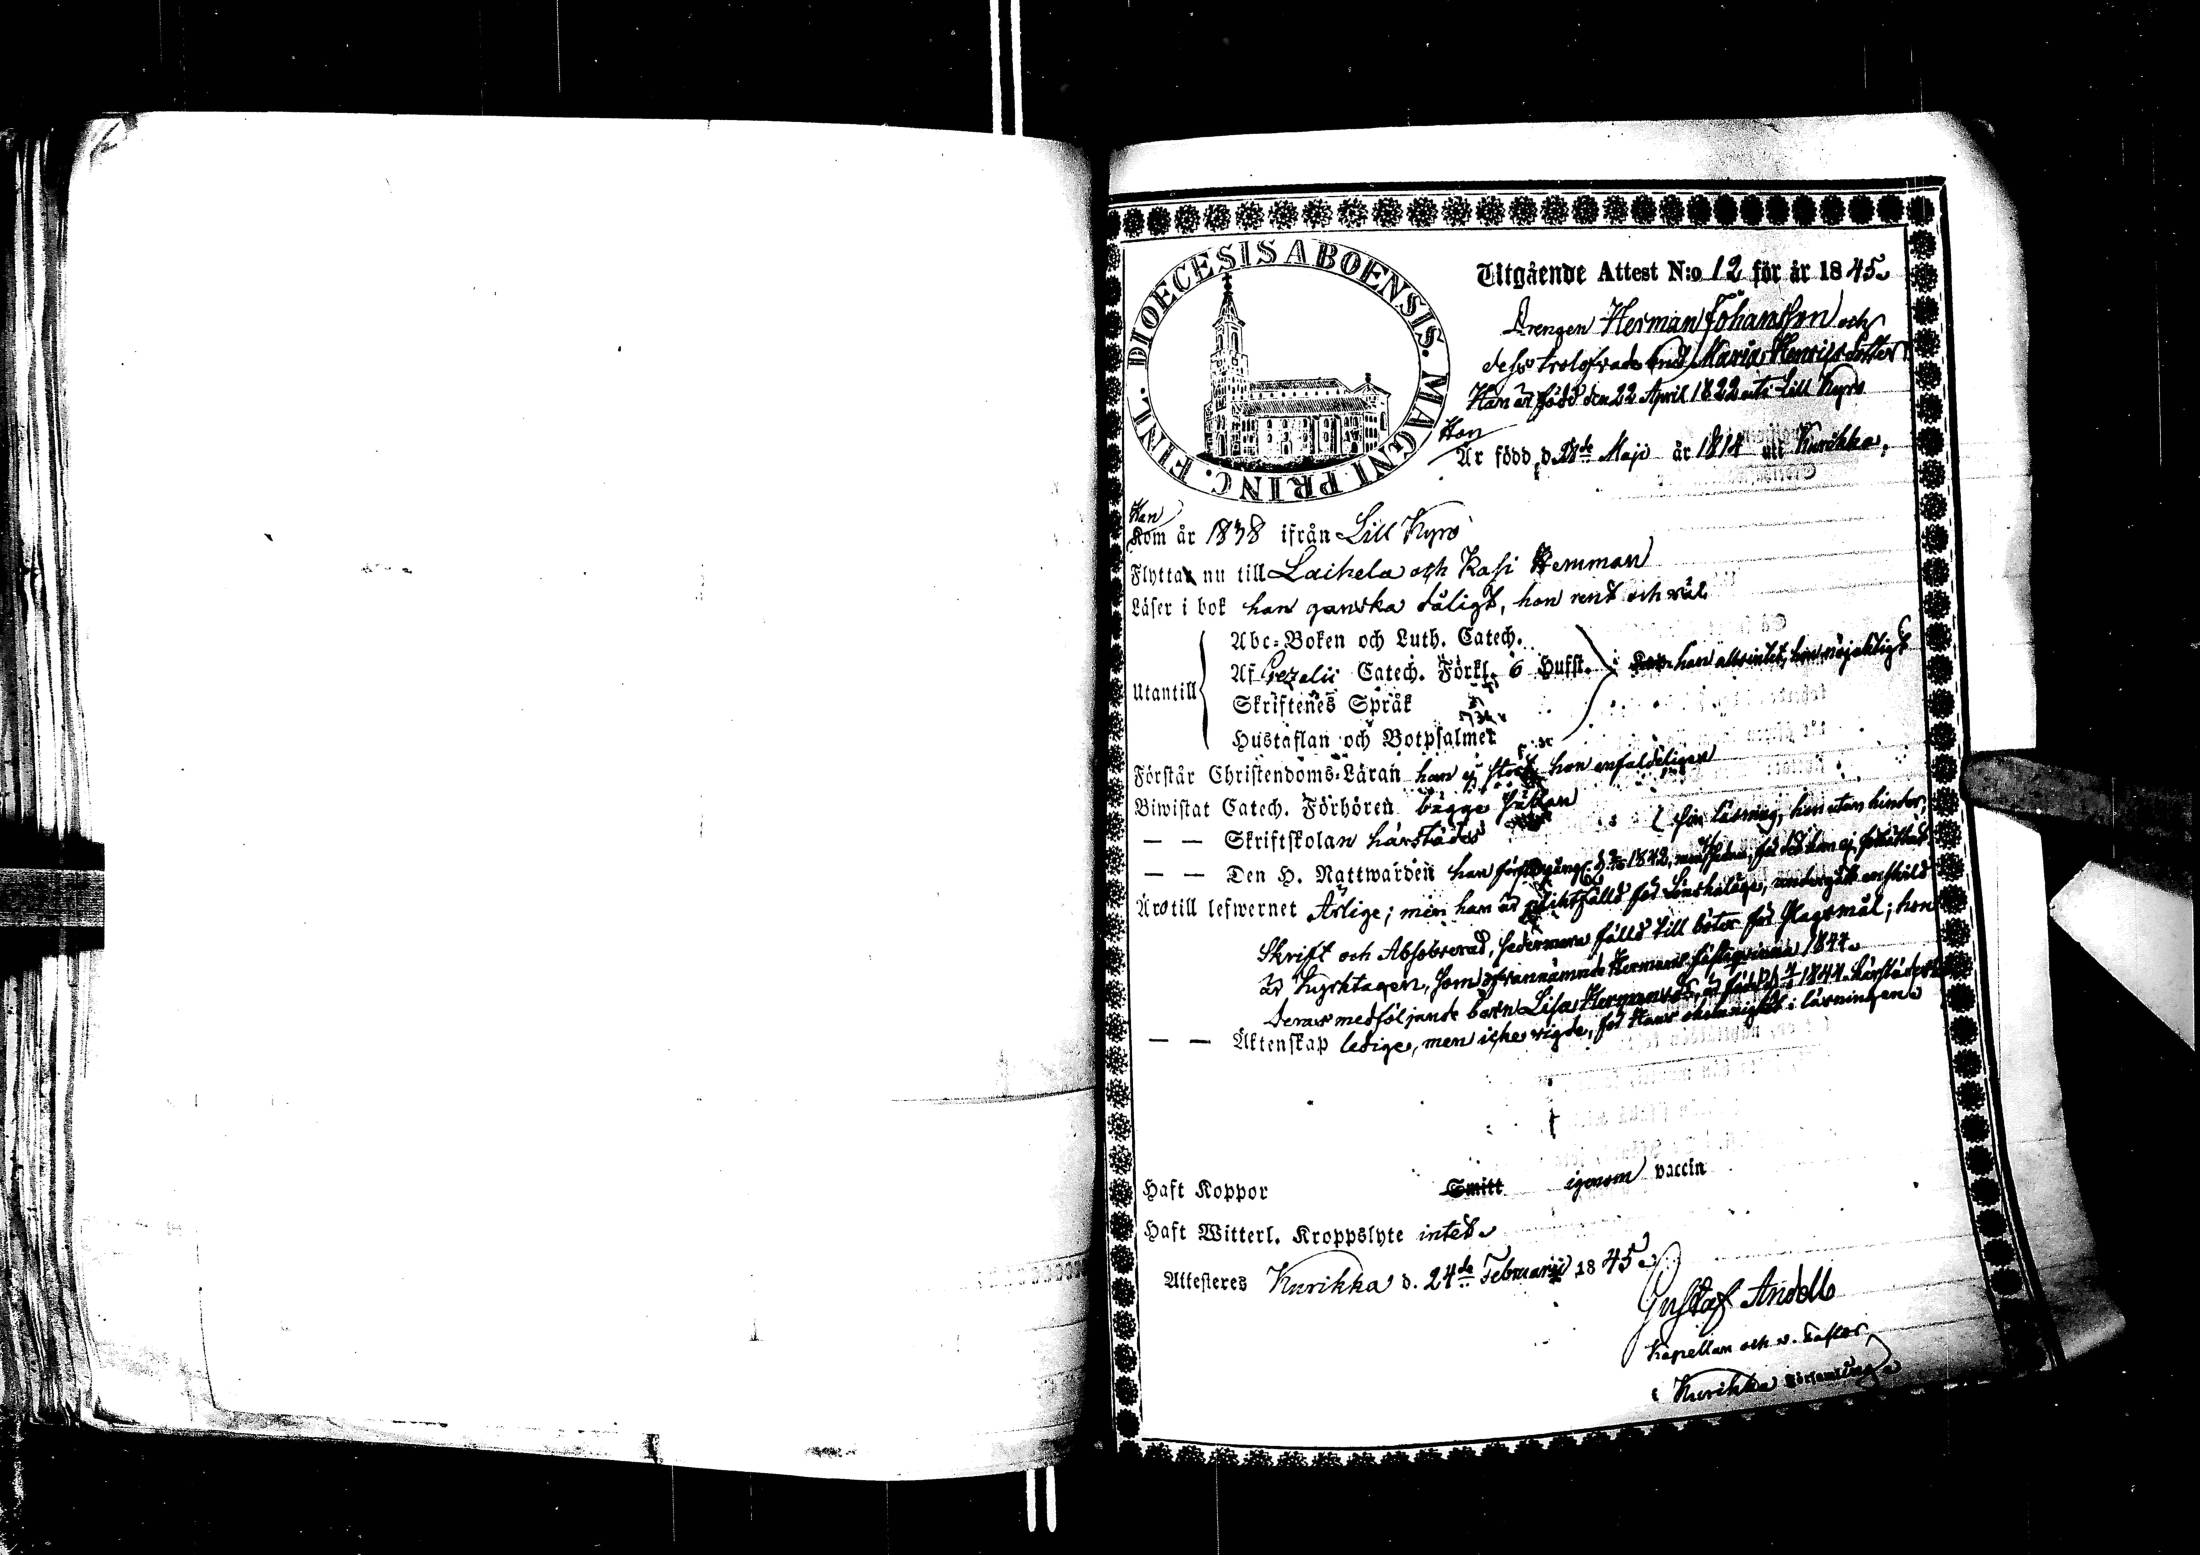 DIOECESIS ABOENSIS. MAGNI PRINC. FINL.
Utgående Attest N:o 12 för år 1845
Drengen Herman Johansson och
dess trolofvade Maria Henrijsdotter
Han är född den 22 April 1822 uti Lill Kyro
Hon
Är född d 28de Maji år 1814 uti Kurikka,
Han
Kom år 1838 ifrån Lill Kyro
Flytta nu till Laihela och Kasi Hemman
Läser i bok han ganska dåligt, hon rent och väl
Abc-Boken och Luth. Catech.
Af Gezelii Catech. Förkl. 6 Hufst. han allsintet, hon nöjaktligt
Utantill
Skriftenes Språk
Hustaflan och Botpsalmer
Förstår Christendoms-Läran han ej stort, hon enfaldeligen
Biwistat Catech. Förhören bägge
— — Skriftskolan härstädes sin läsning, hon utan hinder,
— — Den H. Nattwarden han första gång 1842, men sedan, för det han ej förbättrat
Äro till lefwernet Ärlige; men han är pliktfälld för Lönskaläge, undergått enskild
Skrift och Absolverad, sedermera fälld till böter för Slagsmål; hon
är Kyrktagen, som ofvannämnde Hermans fästeqvinna 1844.
Deras medföljande barn Lisa Hermansd, är född 1844 härstädes
— — Äktenskap ledige, men icke vigde, för Hans okunnighet i läsningen
Haft Koppor Smitt igenom vaccin
Haft Witterl. Kroppslyte intet
Attesteres Kurikka d. 24de Februarii 1845
Gustaf Andell
Kapellan och v. Pastor
i Kurikka Församling